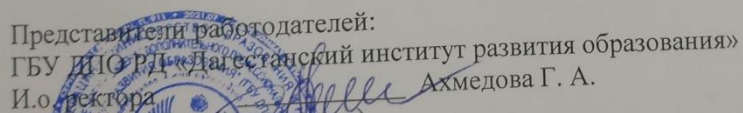 Представители работодателей:
ГБУ ДПО РД «Дагестанский институт развития образования»
И.о. ректора Ахмедова Г. А.